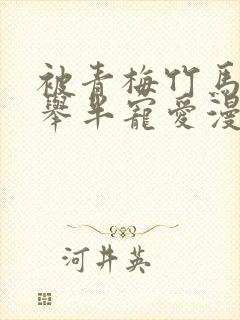 被青梅竹馬
舉半寵愛漫
河井英